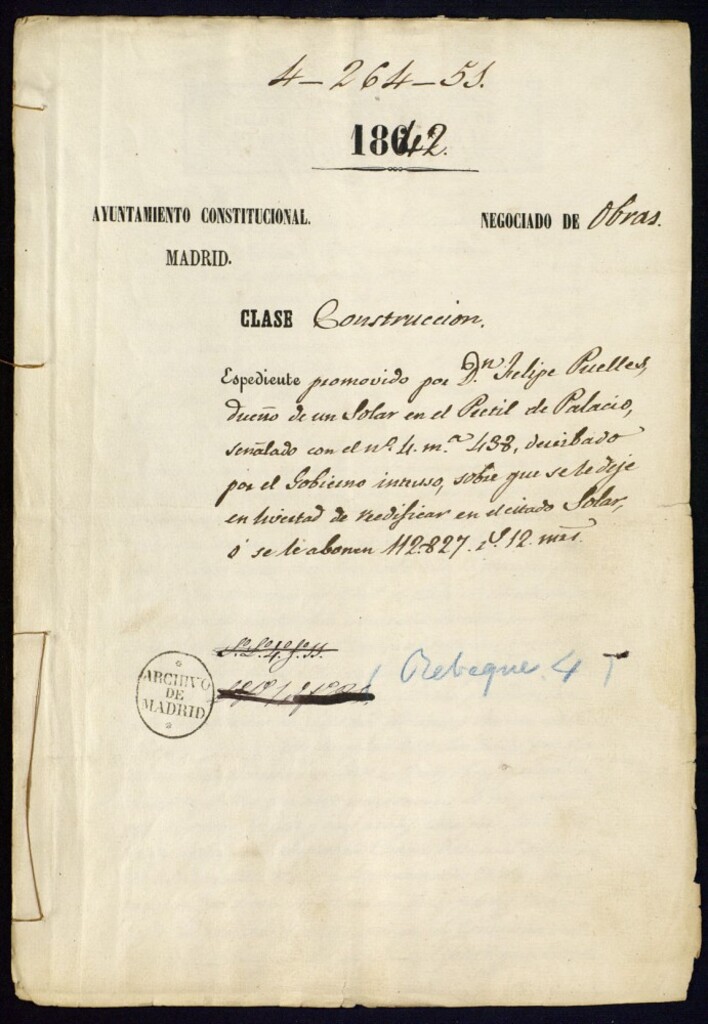 4-264-51.
1842.
AYUNTAMIENTO CONSTITUCIONAL.
MADRID.
NEGOCIADO DE Obras.
CLASE Construccion.
Espediente promovido por D.n Felipe Puelles,
dueño de un Solar en el Pretil de Palacio,
señalado con el nº. 4. m.ª 438, derribado
por el Gobierno intruso, sobre que se le deje
en livertad de reedificar en el citado Solar,
ó se le abonen 112.827. rs. 12. mrs.
ARCHIVO
DE
MADRID
Rebeque 4